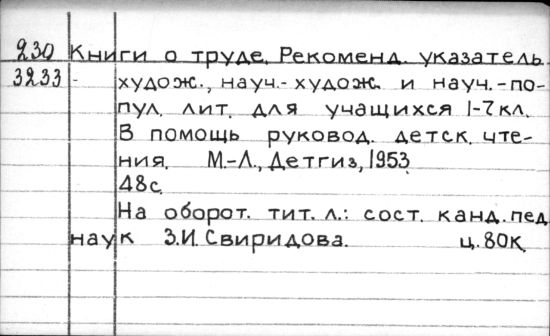 230 Книги о труде. Рекоменд. указатель
3233 - худож., науч.-худож. и науч.-по-
пул. лит. для учащихся 1-7 кл.
В помощь руковод. детск. чте-
ния. М.-Л., Детгиз, 1953.
48с.
На оборот. тит. л.: сост. канд. пед.
наук З.И. Свиридова. ц. 80к.